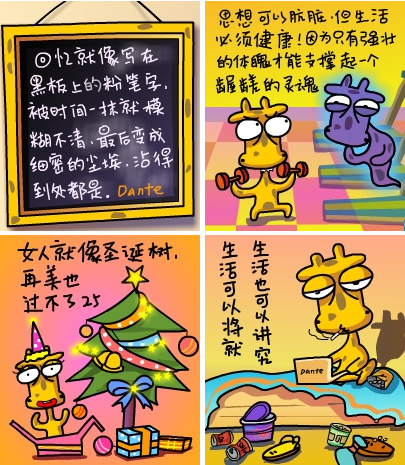 回忆就像写在
黑板上的粉笔字,
被时间一抹就模
糊不清,最后变成
细密的尘埃,沾得
到处都是。Dante
思想可以肮脏,但生活
必须健康!因为只有强壮
的体魄才能支撑起一个
龌龊的灵魂
女人就像圣诞树,
再美也
过不了25
生活也可以讲究
生活可以将就
Dante